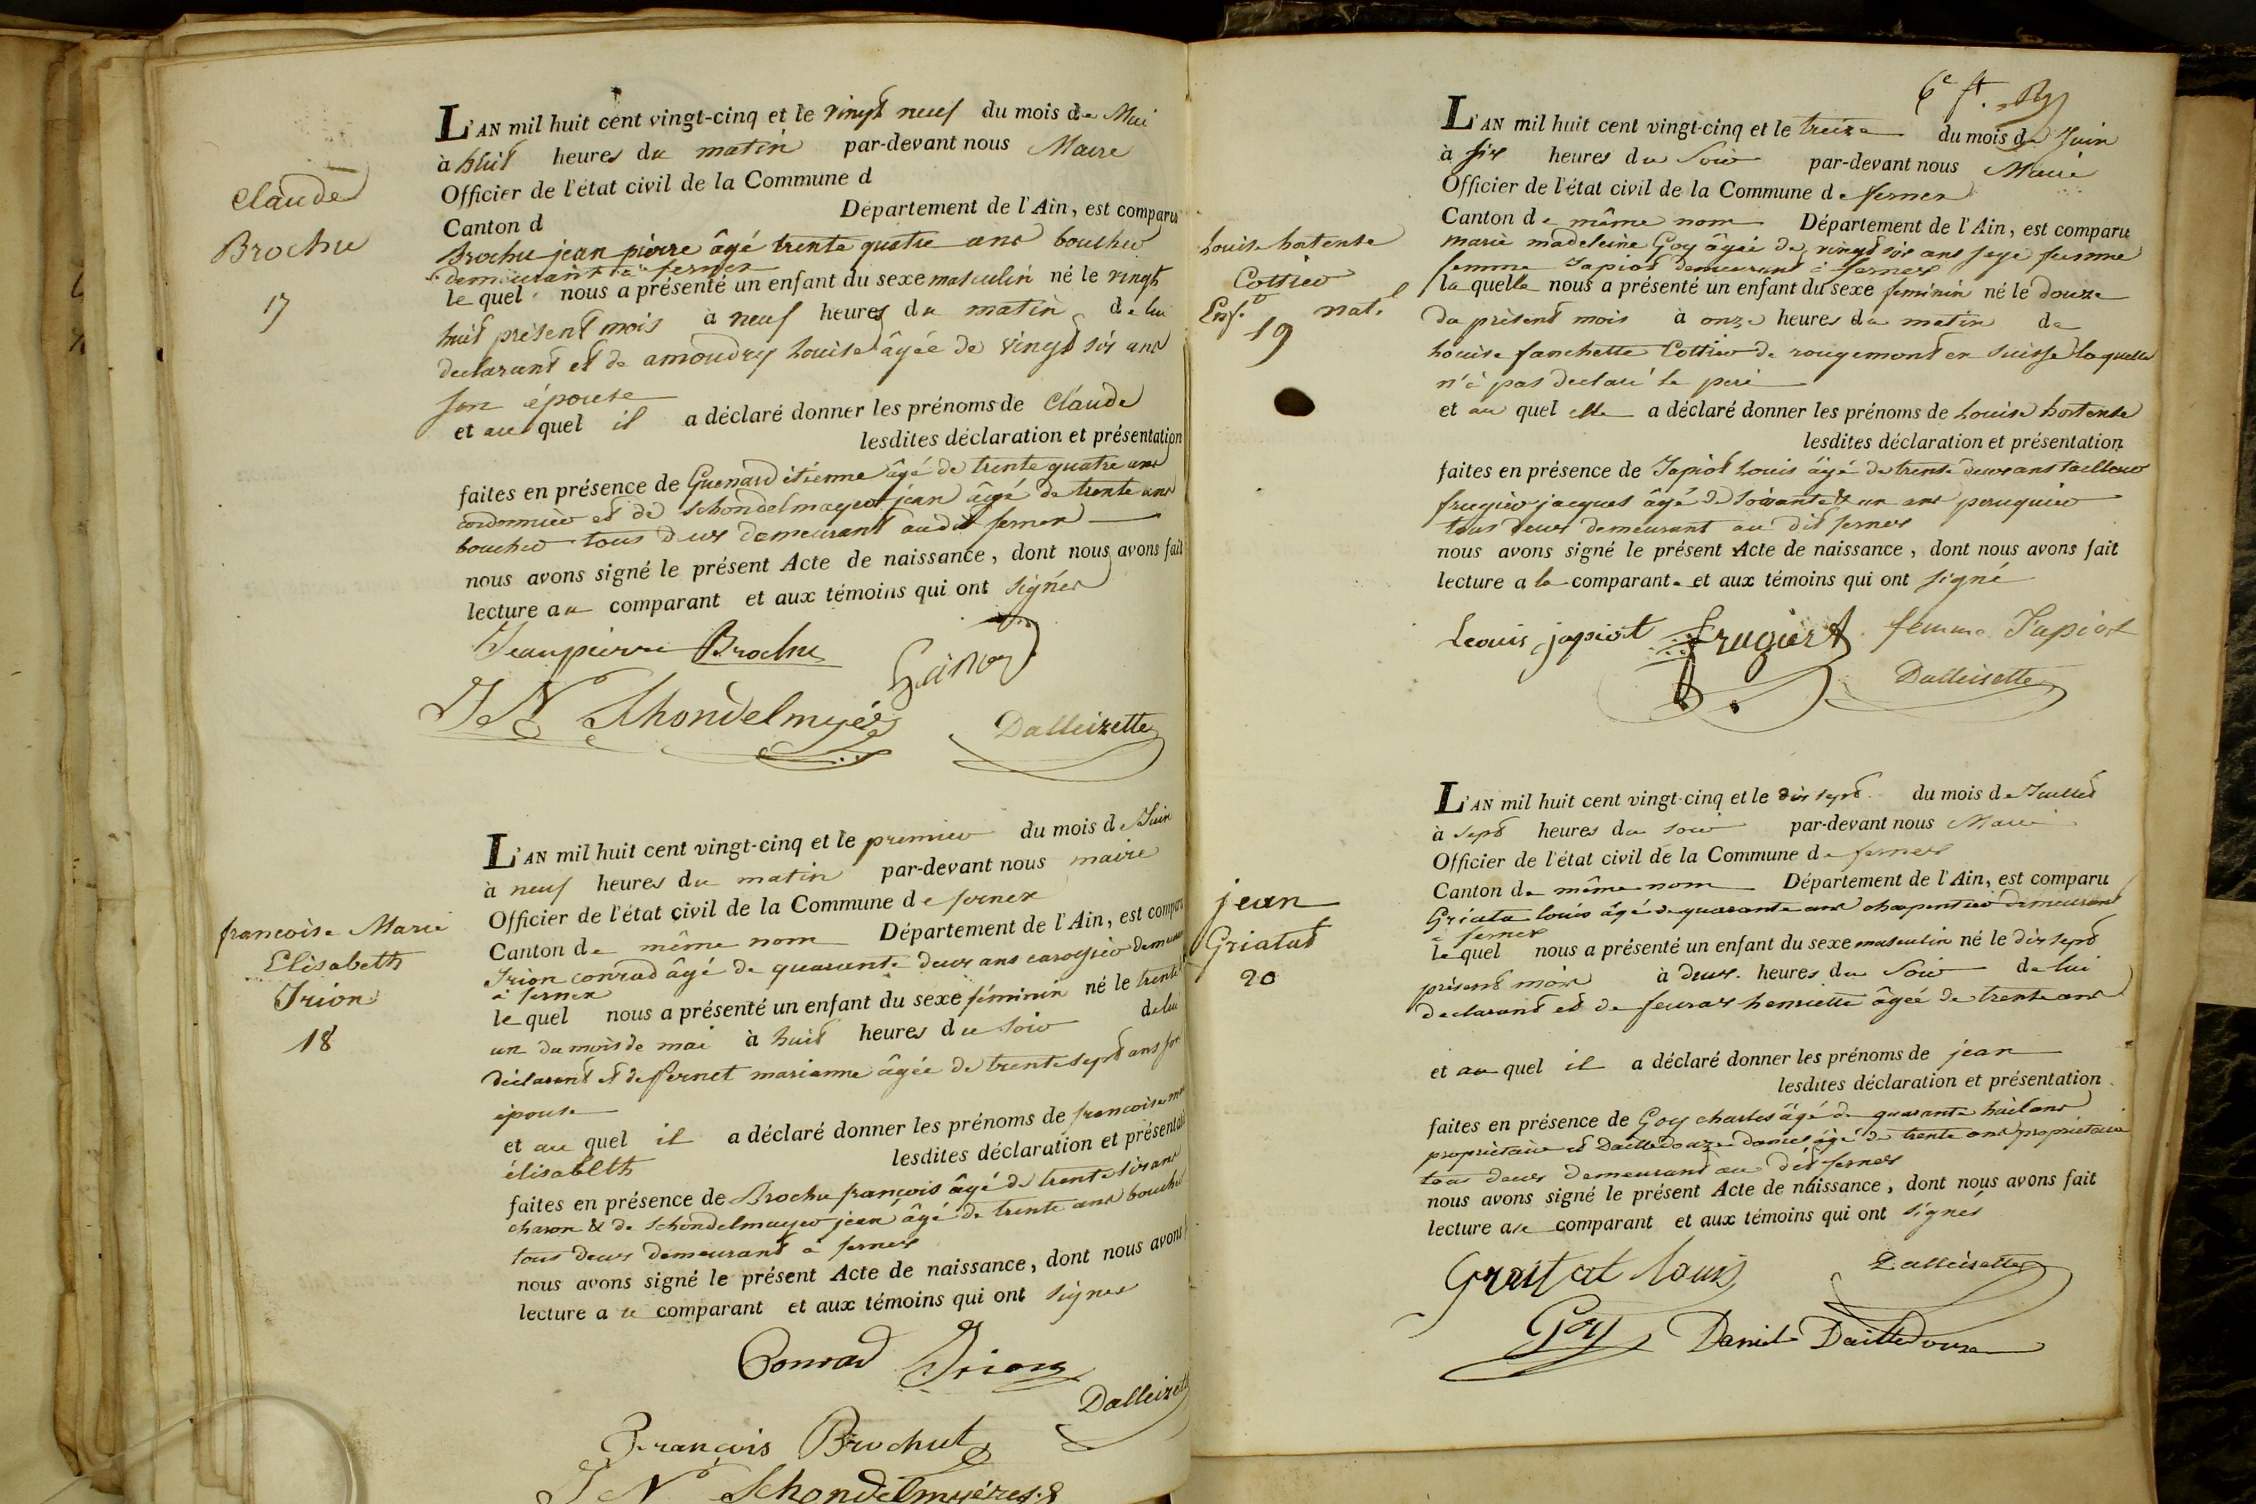 Claude
Brochu
17
L'AN mil huit cent vingt-cinq et le vingt neuf du mois de Mai
à huit heures du matin par-devant nous Maire
Officier de l'état civil de la Commune d
Canton d Département de l'Ain, est comparu
Brochu jean pierre âgé trente quatre ans boucher
demeurant à fernex
le quel nous a présenté un enfant du sexe masculin né le vingt
huit présent mois à neuf heures du matin de lui
declarant et de amoudry Louise âgée de vingt six ans
son épouse
et au quel il a déclaré donner les prénoms de Claude
lesdites déclaration et présentation
faites en présence de Guenard étienne âgé de trente quatre ans
cordonnier et de Schondelmayer jean âgé de trente ans
boucher tous deux demeurant audit fernex
nous avons signé le présent Acte de naissance, dont nous avons fait
lecture au comparant et aux témoins qui ont signés
Jeanpierre Brochu
J N Schondelmyér
Dalleizette
francoise Marie
Elisabeth
Irion
18
L'AN mil huit cent vingt-cinq et le premier du mois de Juin
à neuf heures du matin par-devant nous maire
Officier de l'état civil de la Commune de fernex
Canton de même nom Département de l'Ain, est compar
Irion conrad âgé de quarante deux ans carossier demeurant
à fernex
le quel nous a présenté un enfant du sexe féminin né le trente
un du mois de mai à huit heures du soir de lui
déclarant et de fernet marianne âgée de trente sept ans son
épouse
et au quel il a déclaré donner les prénoms de francoise
élisabeth lesdites déclaration et présentati
faites en présence de Brochu françois âgé de trente six ans
charon & de Schondelmayer jean âgé de trente ans boucher
tous deux demeurant à fernex
nous avons signé le présent Acte de naissance, dont nous avons
lecture a u comparant et aux témoins qui ont signes
Conrad Irion
Dalleizett
François Brochut
J N Schondelmyéres
6e ft.
Louise hortense
Cottier
Enft. nat.l
19
L'AN mil huit cent vingt-cinq et le treize du mois de Juin
à six heures du Soir par-devant nous Maire
Officier de l'état civil de la Commune de fernex
Canton de même nom Département de l'Ain, est comparu
marie madeleine Goy âgée de vingt six ans sage femme
femme Japiot demeurant à fernex
la quelle nous a présenté un enfant du sexe feminin né le douze
du présent mois à onze heures du matin de
Louise fanchette Cottier de rougemont en Suisse laquelle
n'à pas declaré le pere
et au quel elle a déclaré donner les prénoms de Louise hortense
lesdites déclaration et présentation
faites en présence de Japiot Louis âgé de trente deux ans tailleur
frugier jacques âgé de soixante & un ans peruquier
tous deux demeurant au dit fernex
nous avons signé le présent Acte de naissance, dont nous avons fait
lecture a la comparante et aux témoins qui ont signé
Leouis japiot frugiert femme Japiot
Dalleisette
jean
Griatat
20
L'AN mil huit cent vingt-cinq et le dix sept du mois de Juillet
à sept heures du soir par-devant nous Maire
Officier de l'état civil de la Commune de fernex
Canton de même nom Département de l'Ain, est comparu
Griata louis âgé de quarante ans charpentier demeurant
à fernex
le quel nous a présenté un enfant du sexe masculin né le dix sept
présent mois à deux heures du Soir de lui
declarant et de feurax henriette âgée de trente ans
et au quel il a déclaré donner les prénoms de jean
lesdites déclaration et présentation
faites en présence de Goy charles âgé de quarante huit ans
propriétaire et Dailledouze daniel âgé de trente ans propriétaire
tous deux demeurant au dit fernex
nous avons signé le présent Acte de naissance, dont nous avons fait
lecture au comparant et aux témoins qui ont signés
Graitat louis
Dalleisette
Goy Daniel Dailledouze